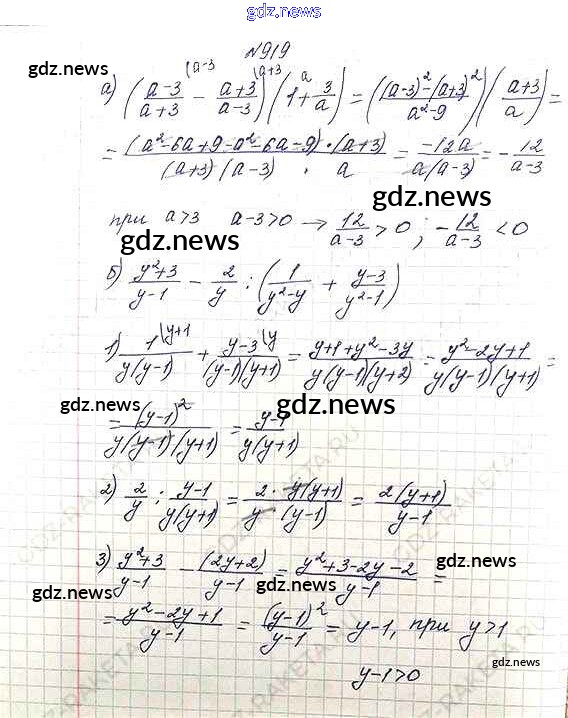 gdz.news
№919
gdz.news
а) ((a-3)/(a+3) \a-3 - (a+3)/(a-3) \a+3)(1 \a + 3/a) = (((a-3)²-(a+3)²)/(a²-9))((a+3)/a) =
= ((a²-6a+9-a²-6a-9)·(a+3))/((a+3)(a-3)·a) = (-12a)/(a(a-3)) = -12/(a-3)
gdz.news
при a>3 a-3>0 → 12/(a-3) > 0; -12/(a-3) < 0
gdz.news
б) (y²+3)/(y-1) - 2/y : (1/(y²-y) + (y-3)/(y²-1))
1) 1\y+1/(y(y-1)) + y-3\y/((y-1)(y+1)) = (y+1+y²-3y)/(y(y-1)(y+2)) = (y²-2y+1)/(y(y-1)(y+1)) =
gdz.news
gdz.news
= (y-1)²/(y(y-1)(y+1)) = (y-1)/(y(y+1))
2) 2/y : (y-1)/(y(y+1)) = (2·y(y+1))/(y (y-1)) = 2(y+1)/(y-1)
gdz.news
3) (y²+3)/(y-1) - (2y+2)/(y-1) = (y²+3-2y-2)/(y-1) =
gdz.news
gdz.news
= (y²-2y+1)/(y-1) = (y-1)²/(y-1) = y-1, при y>1
gdz.news
y-1>0